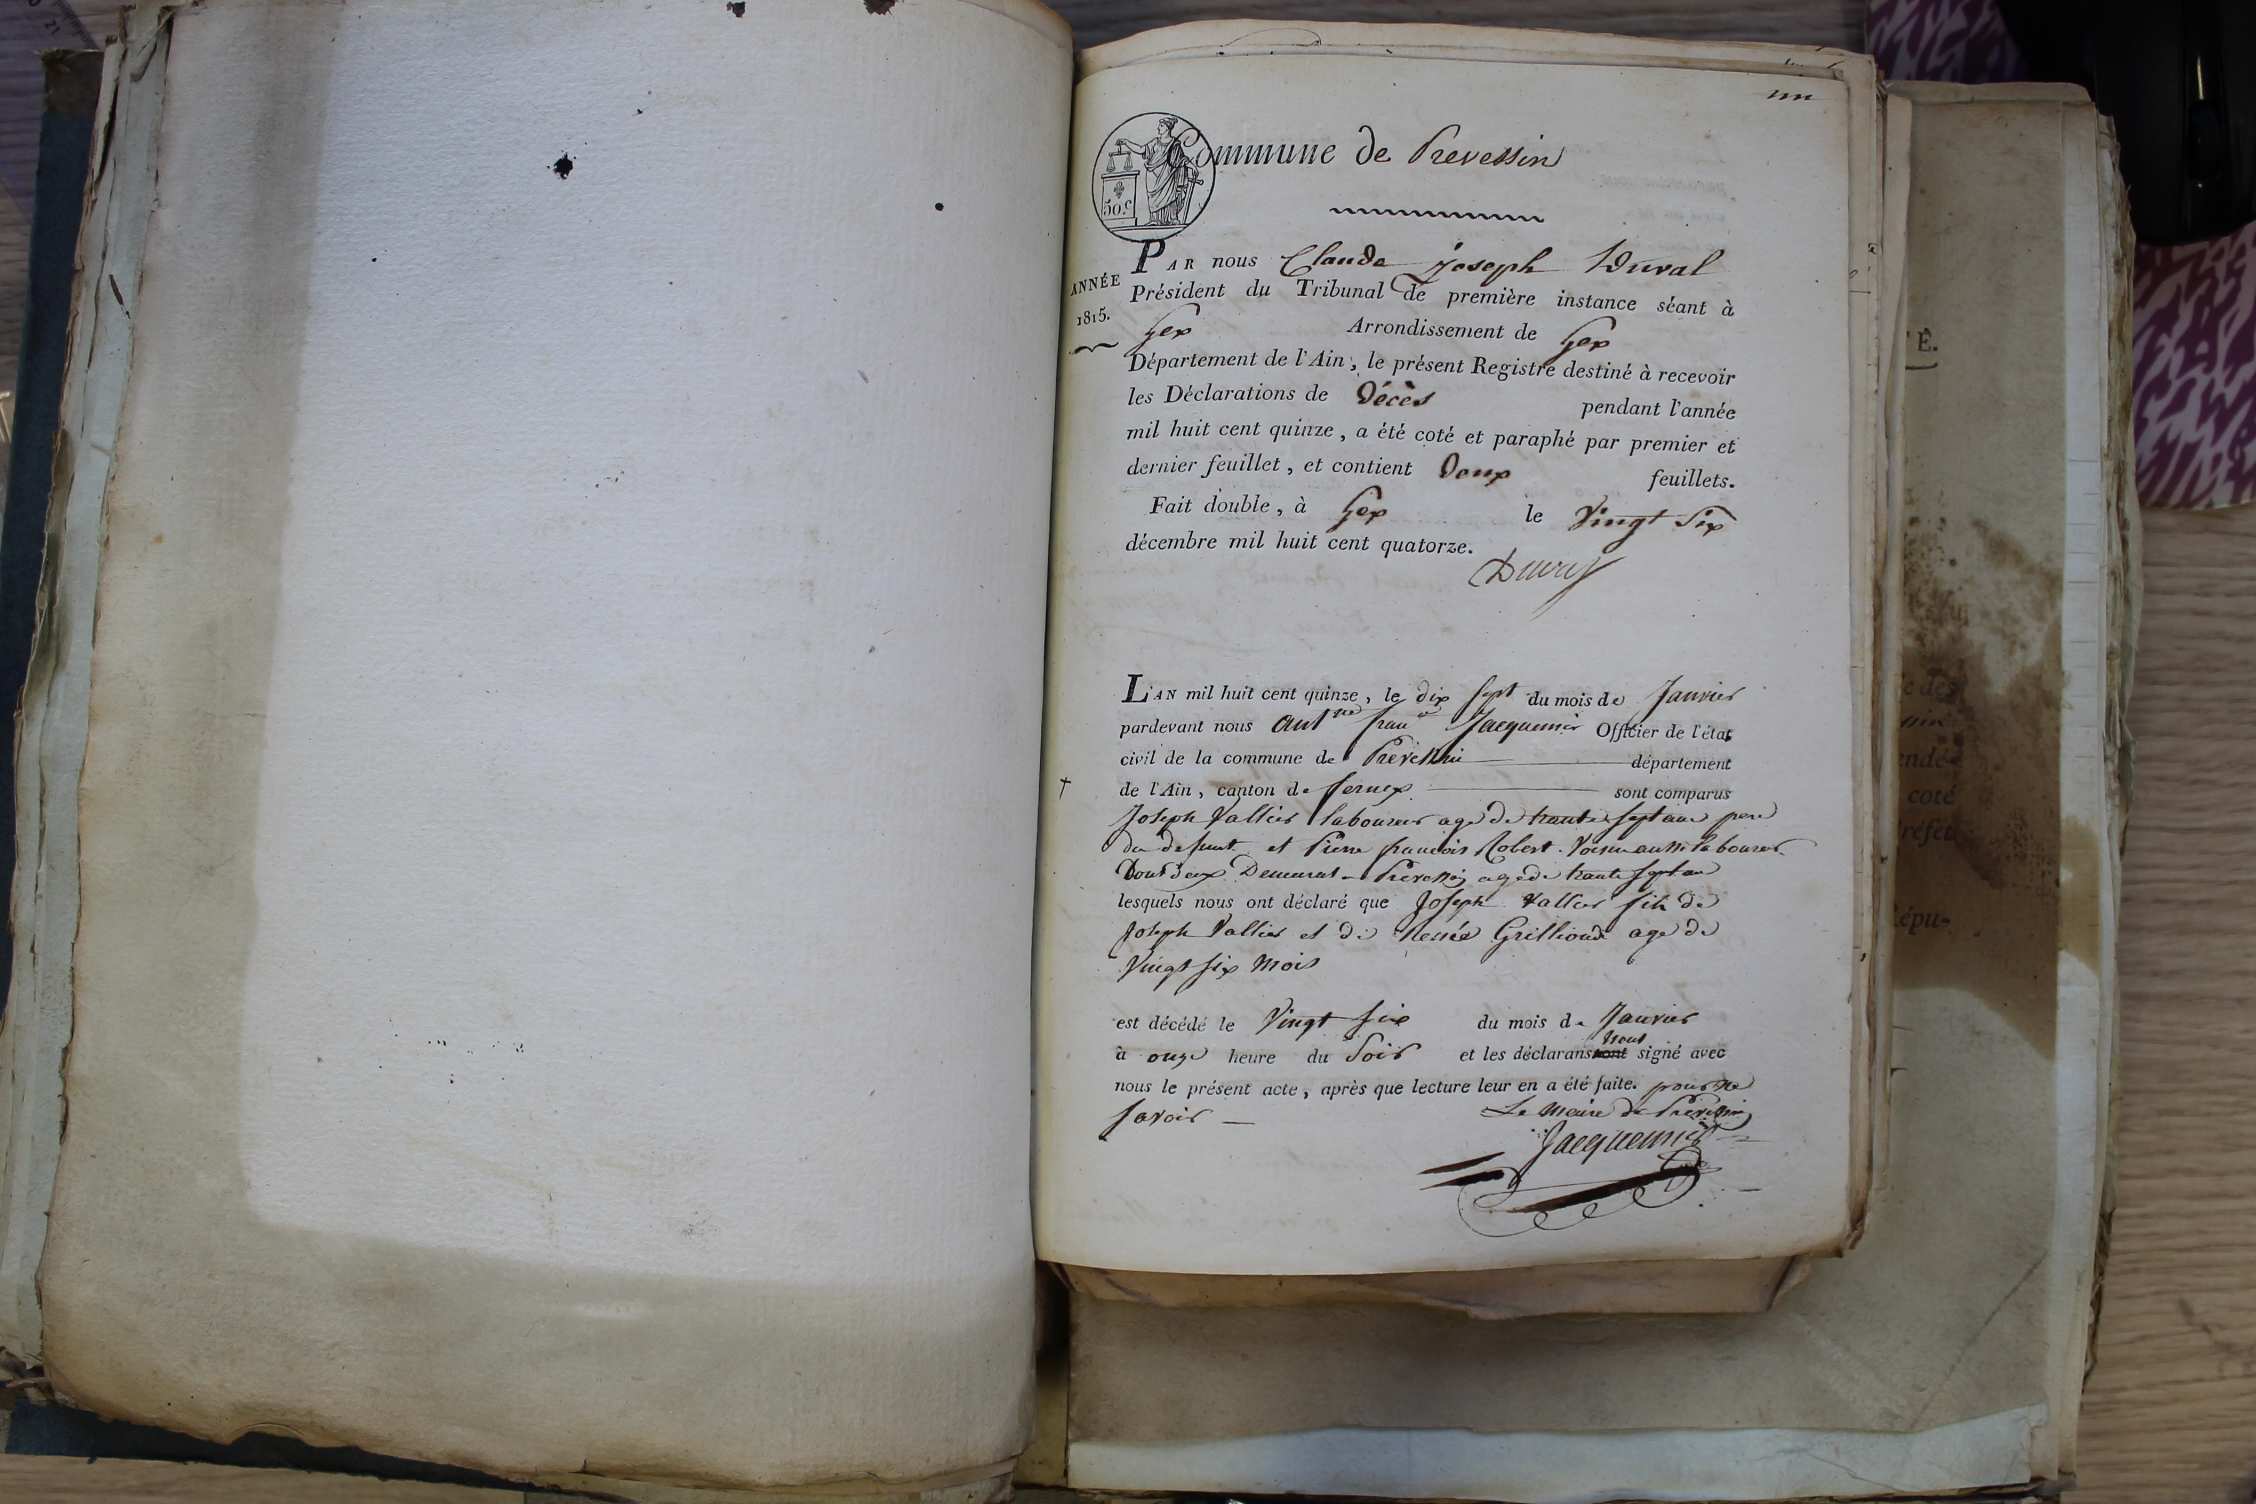 Commune de Prevessin
50.c
PAR nous Claude Joseph Duval
ANNÉE
1815.
Président du Tribunal de première instance séant à
Gex Arrondissement de Gex
Département de l'Ain, le présent Registre destiné à recevoir
les Déclarations de Décès pendant l'année
mil huit cent quinze, a été coté et paraphé par premier et
dernier feuillet, et contient Deux feuillets.
Fait double, à Gex le Vingt Six
décembre mil huit cent quatorze.
Duval
L'AN mil huit cent quinze, le dix sept du mois de Janvier
pardevant nous antne franc Jacquemier Officier de l'état
civil de la commune de Prevessin département
de l'Ain, canton de fernex sont comparus
Joseph Vallier laboureur age de trente sept ans pere
du defunt et Pierre francois Robert voisin aussi laboureur
tout deux Demeurant Prevessin age de trente sept ans
lesquels nous ont déclaré que Joseph Vallier fils de
Joseph Vallier et de age de
Vingt six mois
est décédé le Vingt six du mois de Janvier
à onze heure du Soir et les déclarans nont signé avec
nous le présent acte, après que lecture leur en a été faite. pour ne
savoir
Le Maire de Prevessin
Jacquemier
É.
e des
ssin
endé-
coté
réfet
Répu-